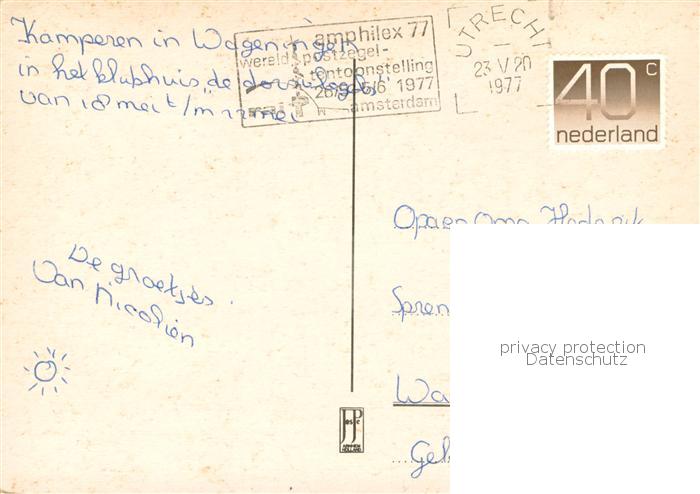 Kamperen in Wageningen
in het klubhuis "de
van 18 mei t/m 22 mei
amphilex 77
wereld postzegel-
tentoonstelling
26/5 6/6 1977
amsterdam
UTRECHT
23 V 20
1977
40 c
nederland
Opa en Oma
Spren
Wa
Gel
De groetjes
van Nicolien
JosPé
ARNHEM
HOLLAND
privacy protection
Datenschutz